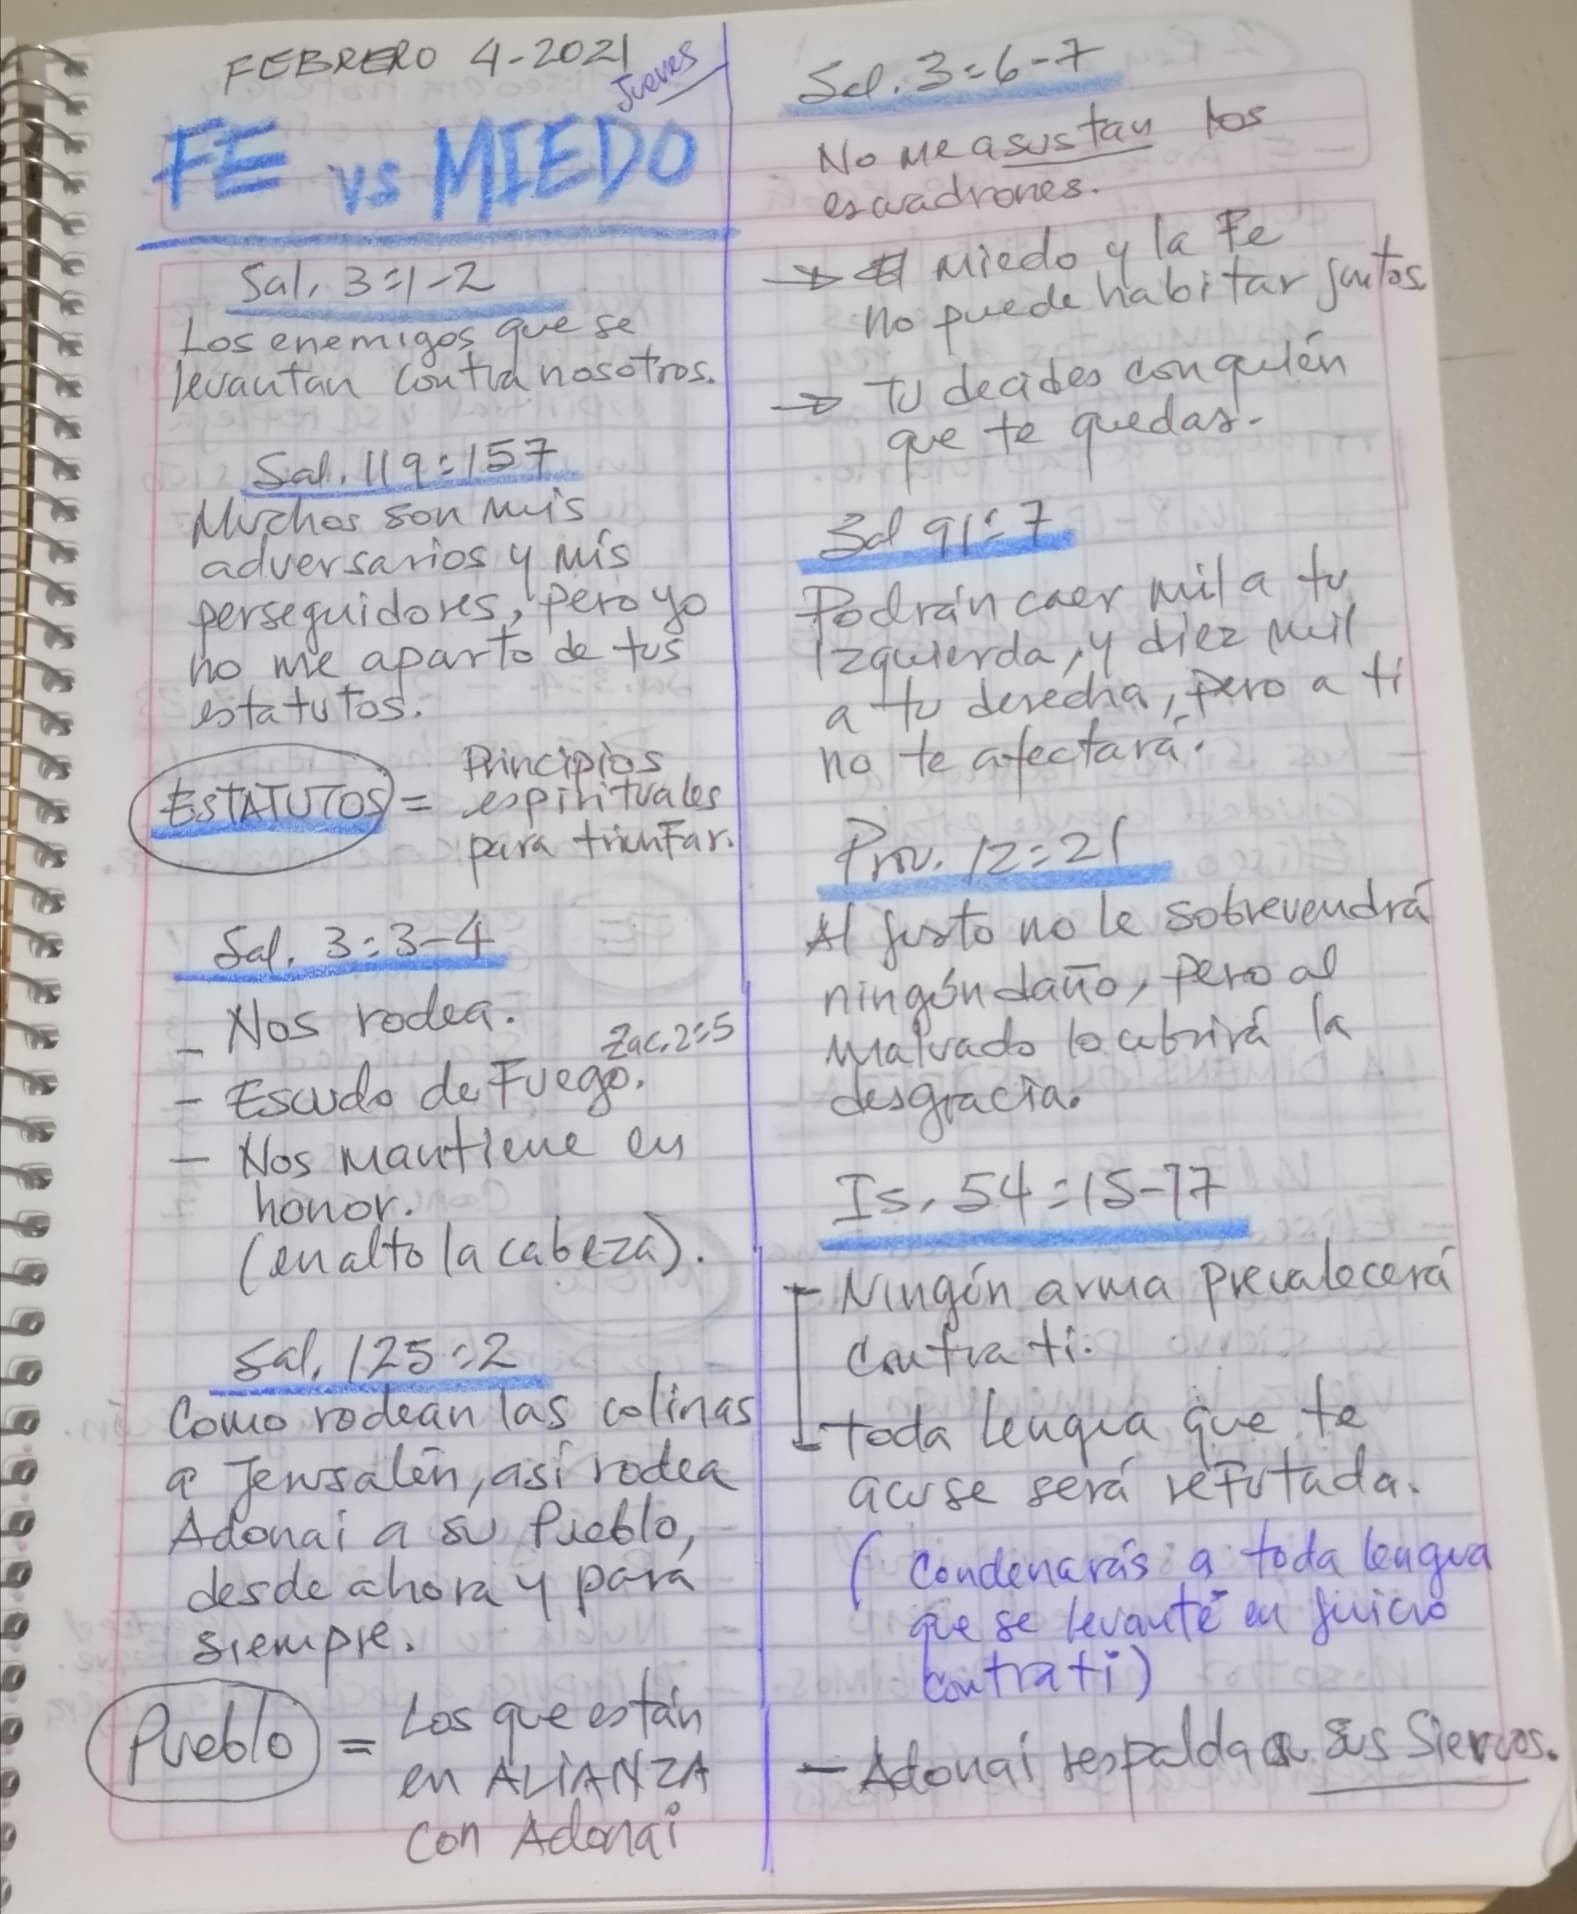 FEBRERO 4-2021
Jueves
FE vs MIEDO
Sal. 3:1-2
Los enemigos que se
levantan contra nosotros.
Sal. 119:157
Muchos son mis
adversarios y mis
perseguidores, pero yo
no me aparto de tus
estatutos.
ESTATUTOS = Principios
espirituales
para triunfar.
Sal. 3:3-4
- Nos rodea.
Zac. 2:5
- Escudo de Fuego.
- Nos mantiene en
honor.
(en alto la cabeza).
Sal. 125:2
Como rodean las colinas
a Jerusalén, así rodea
Adonai a su Pueblo,
desde ahora y para
siempre.
Pueblo = Los que están
en ALIANZA
con Adonai
Sal. 3:6-7
No me asustan los
escuadrones.
→ El Miedo y la Fe
no puede habitar juntos.
→ Tu decides con quién
que te quedas.
Sal 91:7
Podrán caer mil a tu
izquierda, y diez mil
a tu derecha, pero a ti
no te afectará.
Prov. 12:21
Al justo no le sobrevendrá
ningún daño, pero al
malvado lo cubrirá la
desgracia.
Is. 54:15-17
- Ningún arma prevalecerá
contra ti.
- toda lengua que te
acuse será refutada.
(Condenarás a toda lengua
que se levante en juicio
contra ti)
- Adonai respalda a sus Siervos.